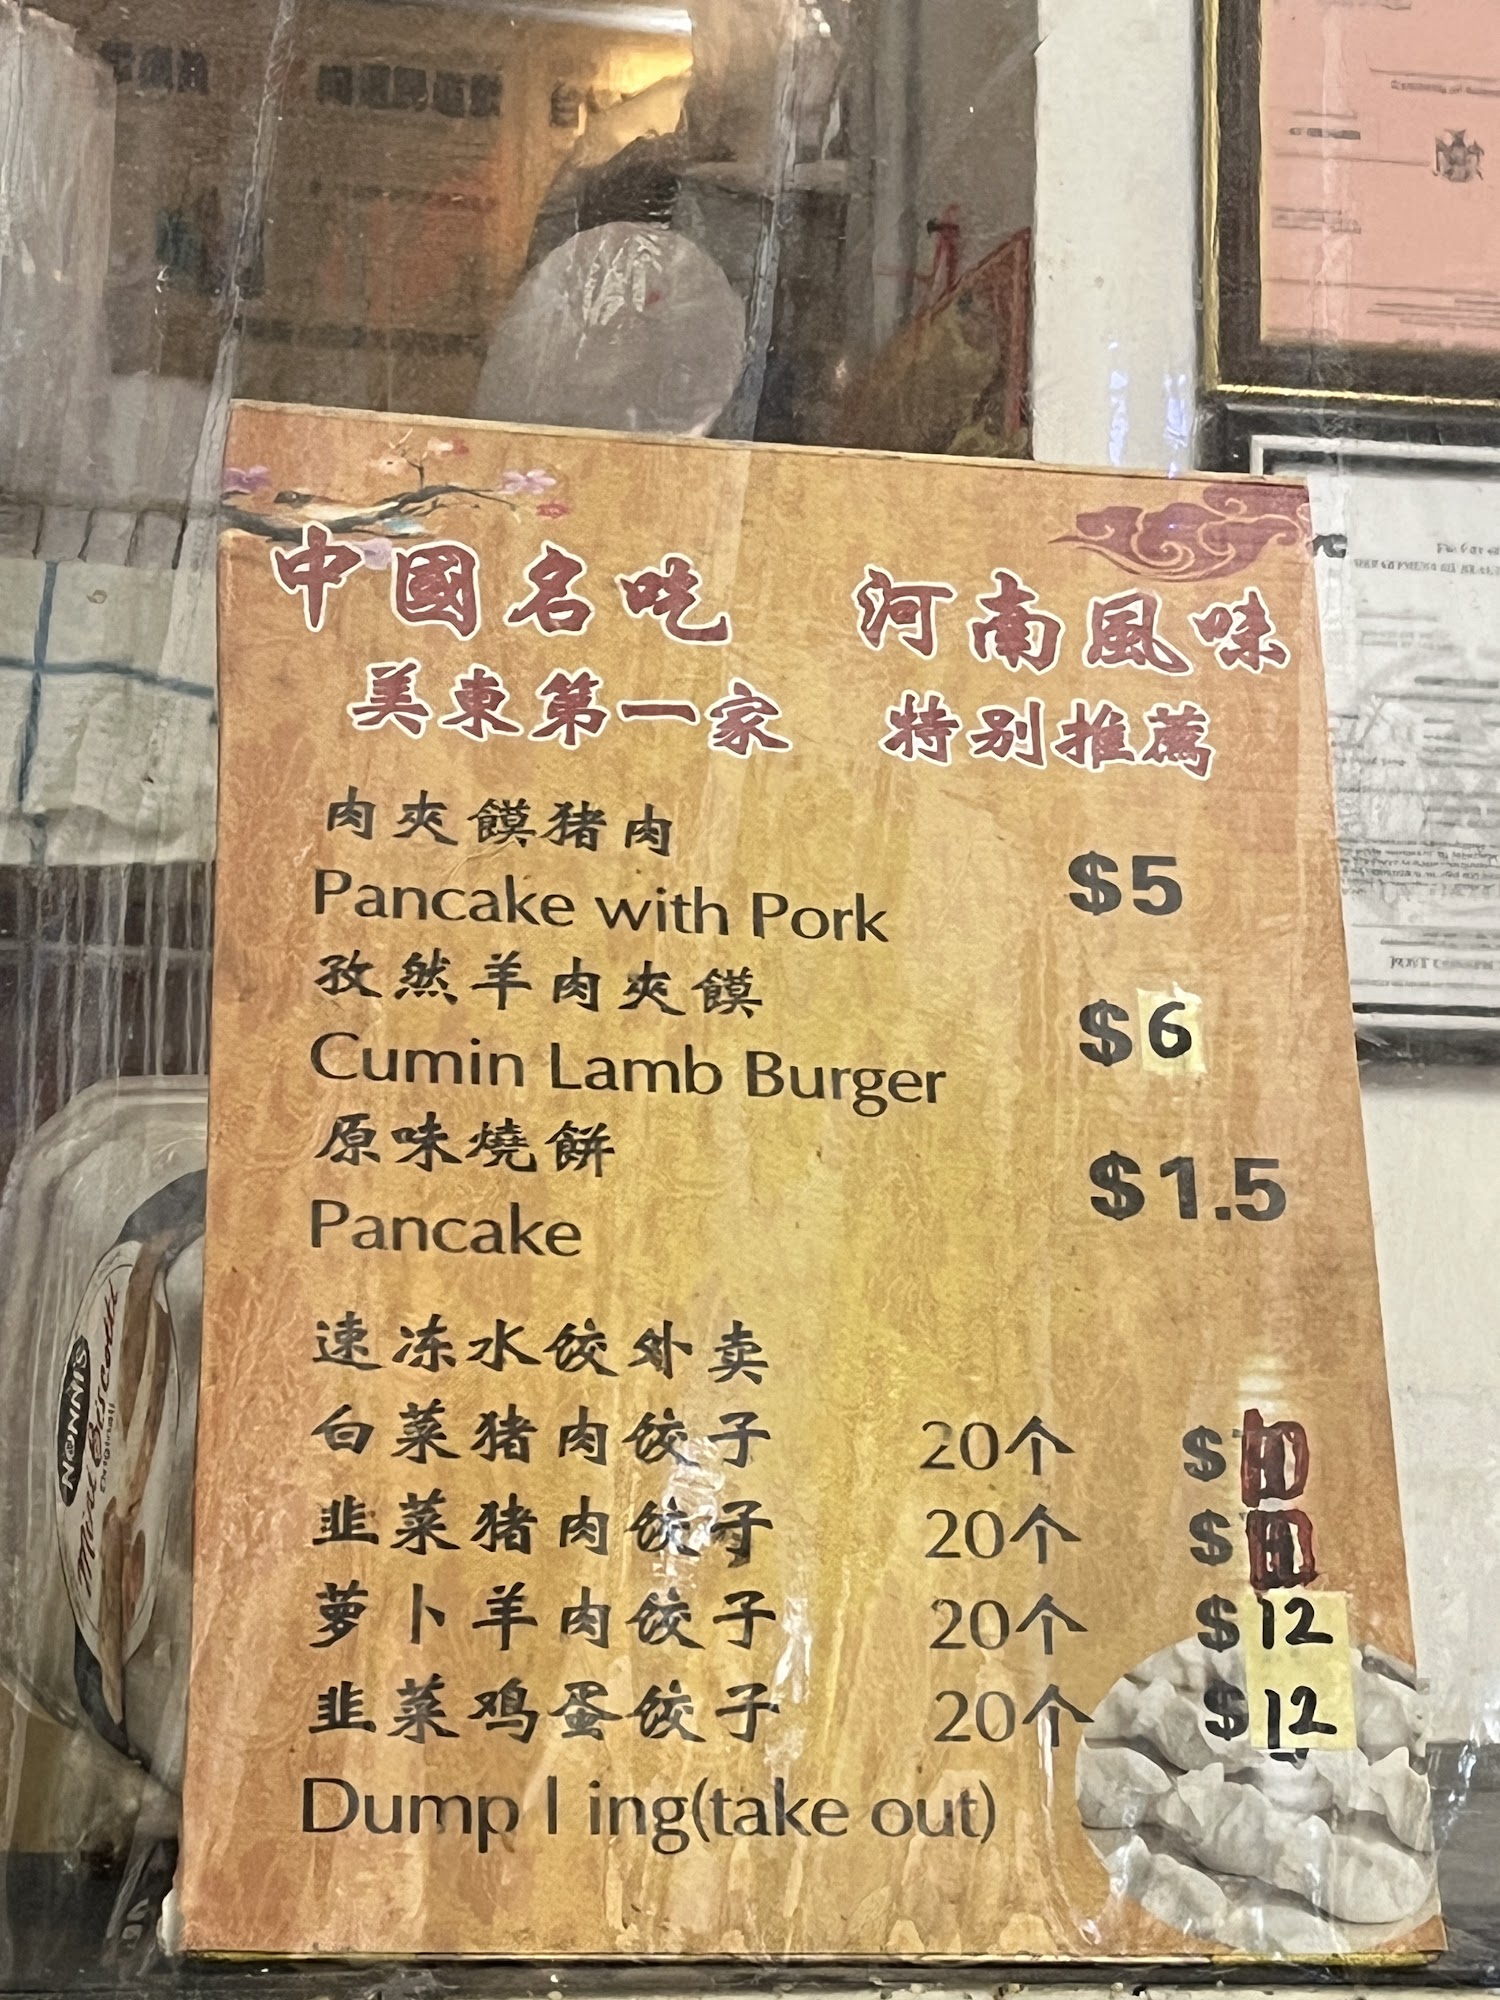 中國名吃 河南風味
美東第一家 特别推薦
肉夾饃猪肉
Pancake with Pork $5
孜然羊肉夾饃
Cumin Lamb Burger $6
原味燒餅
Pancake $1.5
速冻水饺外卖
白菜猪肉饺子 20个 $10
韭菜猪肉饺子 20个 $10
萝卜羊肉饺子 20个 $12
韭菜鸡蛋饺子 20个 $12
Dump l ing(take out)
NONNI'S
Mini Biscotti
Originali